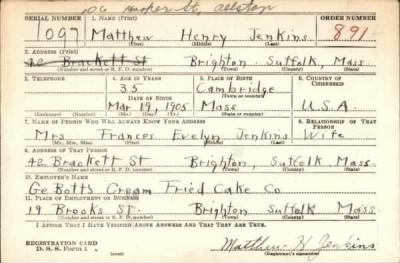 Hooker St, Allston
SERIAL NUMBER 1. NAME (Print) ORDER NUMBER
1097 Matthew Henry Jenkins 891
(First) (Middle) (Last)
2. ADDRESS (Print)
42 Brackett St Brighton, Suffolk, Mass.
(Number and street or R. F. D. number) (Town) (County) (State)
3. TELEPHONE 4. AGE IN YEARS 5. PLACE OF BIRTH 6. COUNTRY OF CITIZENSHIP
35 Cambridge
DATE OF BIRTH (Town or county)
Mar 19, 1905 Mass U.S.A.
(Exchange) (Number) (Mo.) (Day) (Yr.) (State or country)
7. NAME OF PERSON WHO WILL ALWAYS KNOW YOUR ADDRESS 8. RELATIONSHIP OF THAT PERSON
Mrs Frances Evelyn Jenkins Wife
(Mr., Mrs., Miss) (First) (Middle) (Last)
9. ADDRESS OF THAT PERSON
42 Brackett St Brighton, Suffolk Mass.
(Number and street or R. F. D. number) (Town) (County) (State)
10. EMPLOYER'S NAME
Ge Bott's Cream Fried Cake Co
11. PLACE OF EMPLOYMENT OR BUSINESS
19 Brooks St. Brighton Suffolk Mass.
(Number and street or R. F. D. number) (Town) (County) (State)
I AFFIRM THAT I HAVE VERIFIED ABOVE ANSWERS AND THAT THEY ARE TRUE.
REGISTRATION CARD
D. S. S. FORM 1 (over) Matthew H Jenkins
(Registrant's signature)